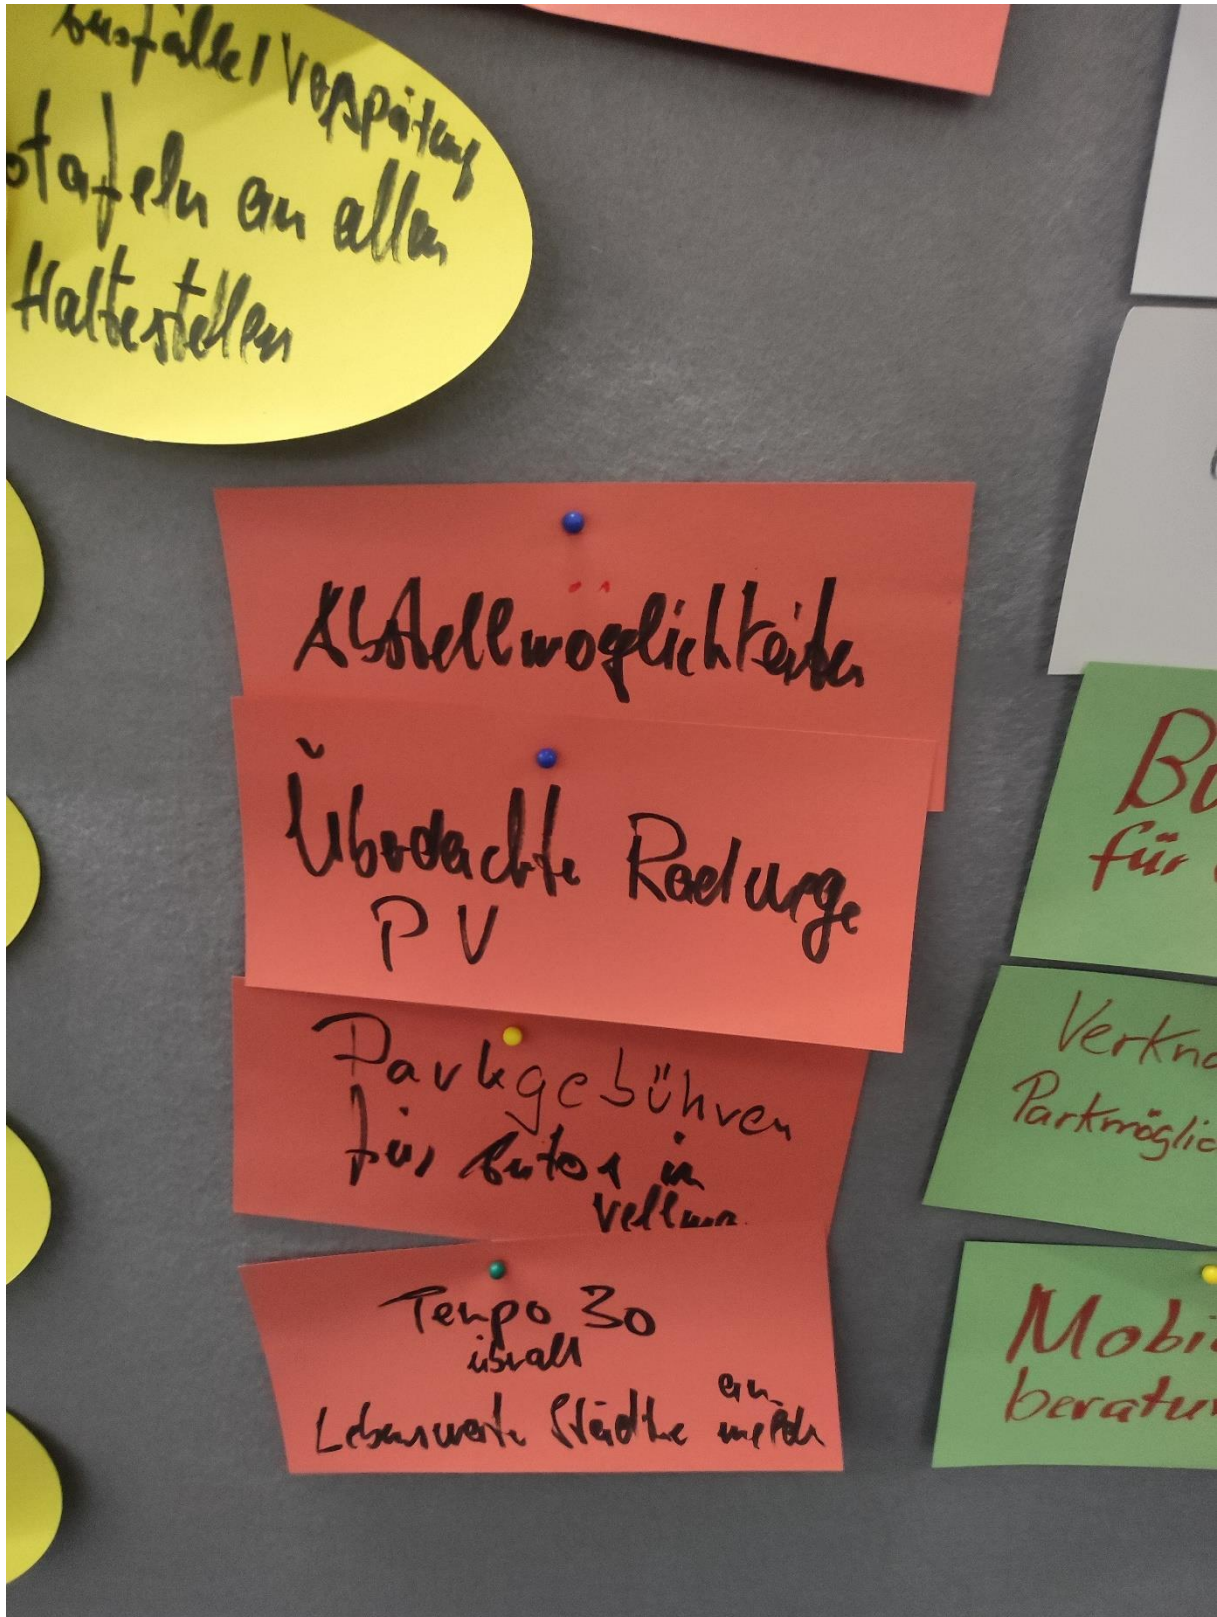 Ausfälle / Verspätung
otafeln an allen
Haltestellen
Abstellmöglichkeiten
Überdachte Radwege
PV
Parkgebühren
für Autos in
Vellmar
Tempo 30
überall
Lebenswerte Städte
an
melden
Bu
für
Verkn
Parkmöglic
Mobi
beratu